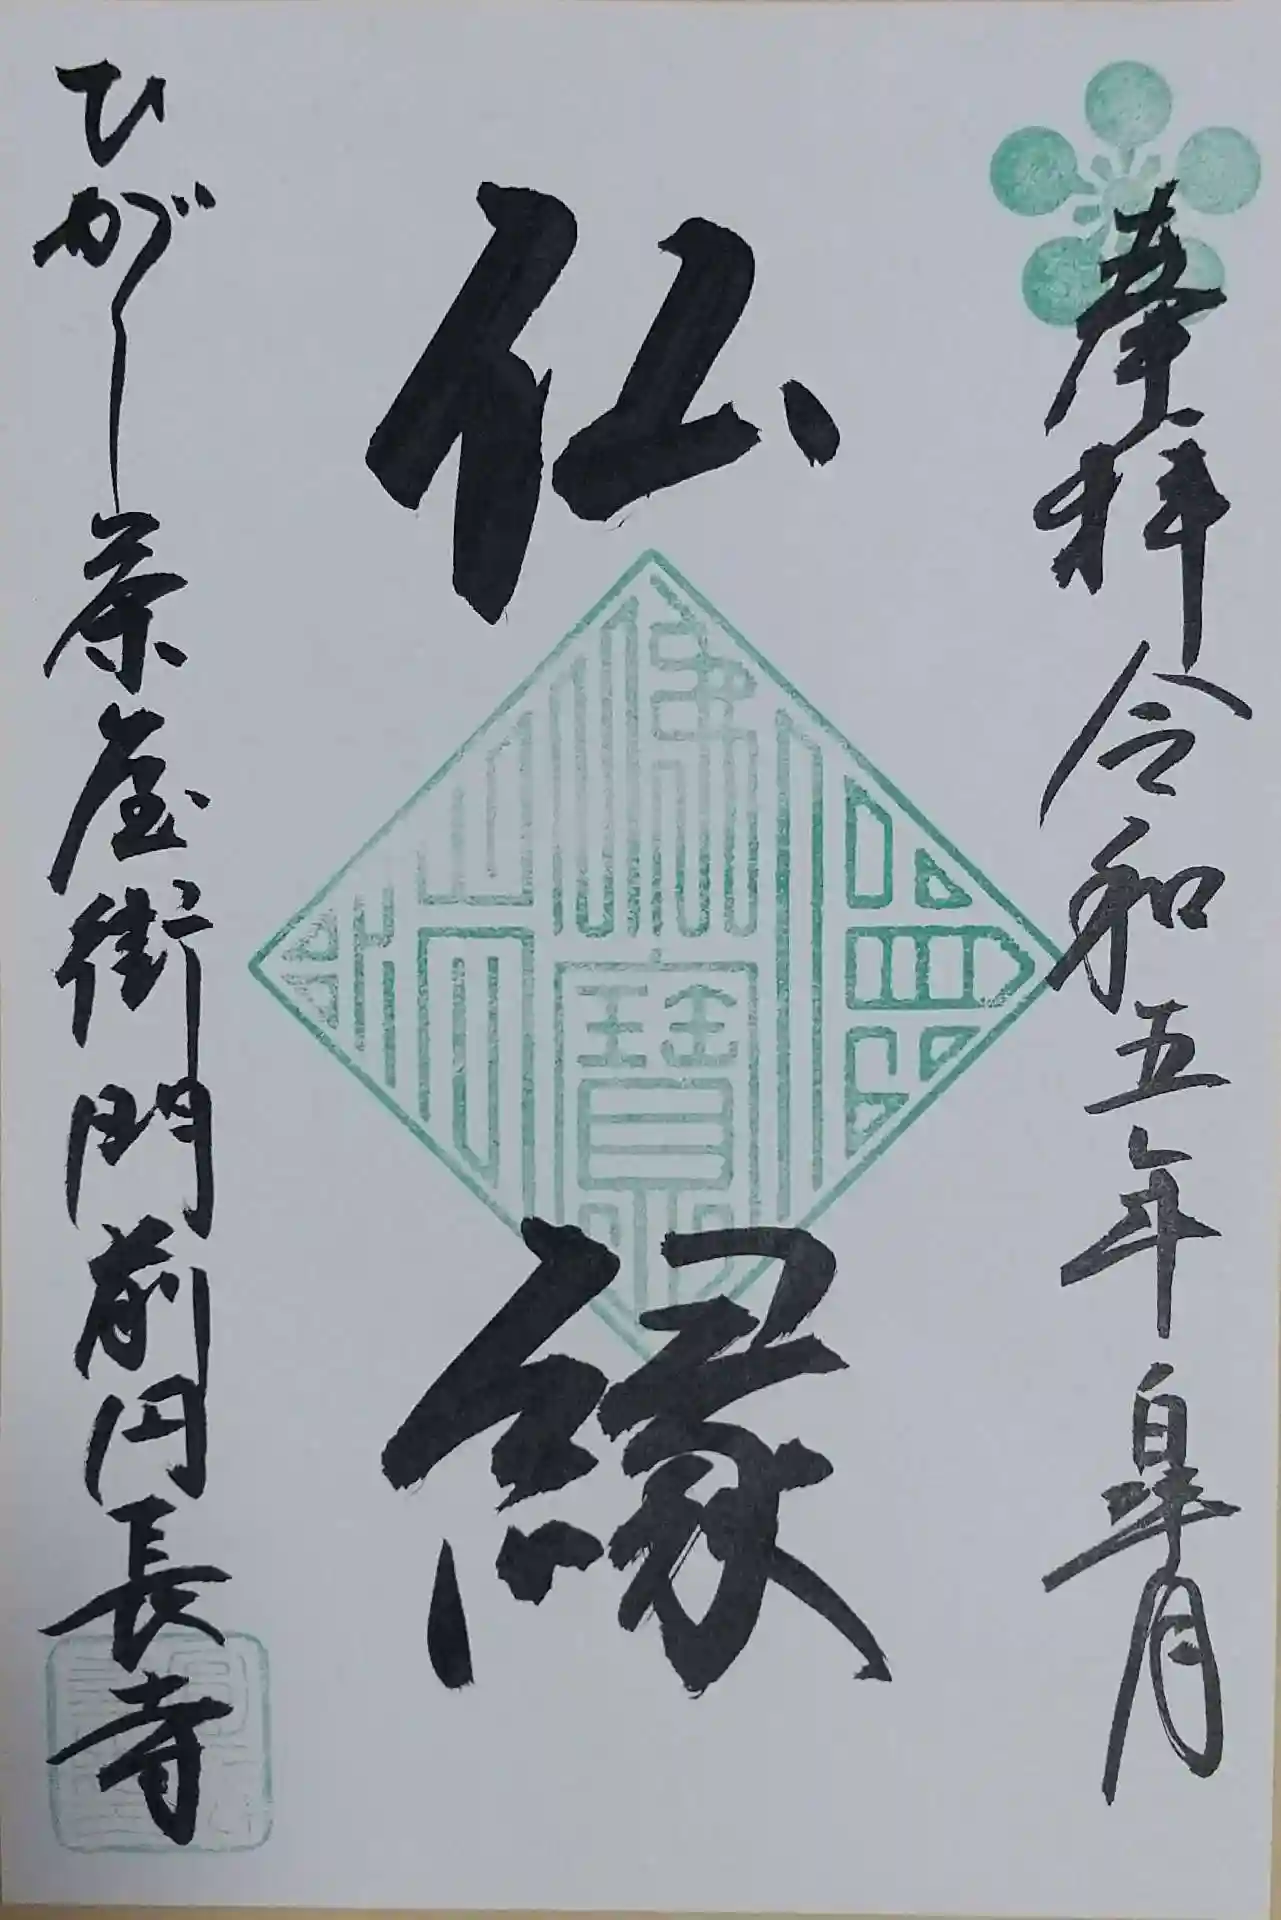 奉拝 令和五年 皐月
仏縁
佛法僧寶
ひがし茶屋街門前円長寺